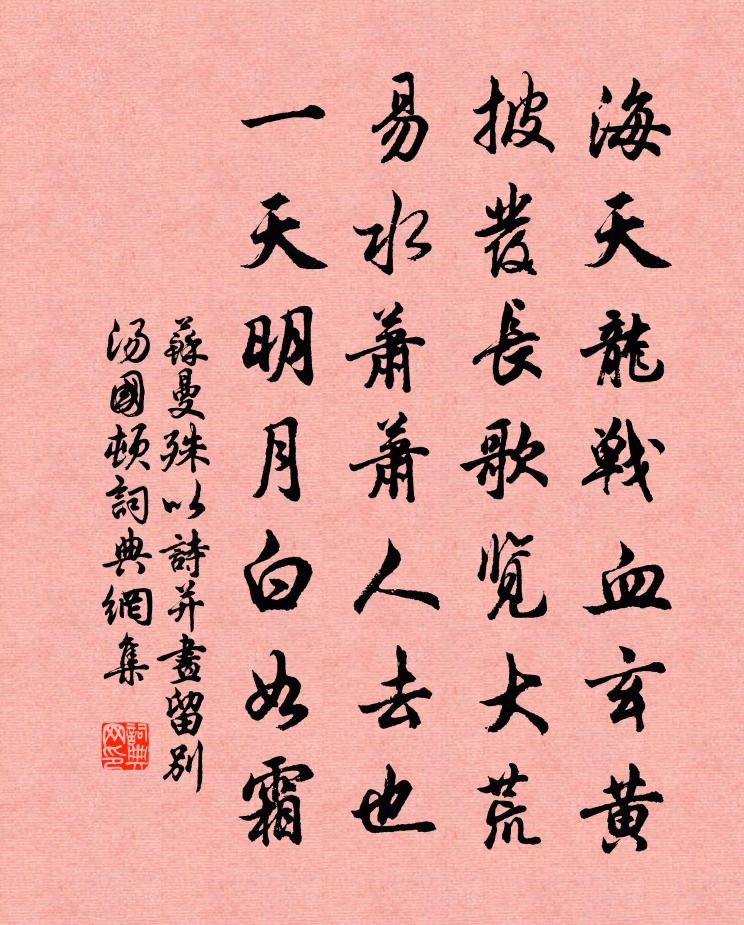 海天龍戰血玄黃
披發長歌覽大荒
易水蕭蕭人去也
一天明月白如霜
蘇曼殊以詩並畫留別
湯國頓詞典網集
詞典网印